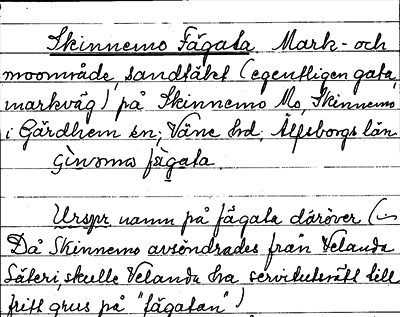 Skinnemo Fägata. Mark- och
moområde, sandtäkt (egentligen gata,
markväg) på Skinnemo Mo, Skinnemo
i Gärdhem sn; Väne hd, Älfsborgs län
fǟgata.
Urspr namn på fägata däröver (
Då Skinnemo avsöndrades från Velanda
Säteri, skulle Velanda ha servitutsrätt till
fritt grus på "fägatan")